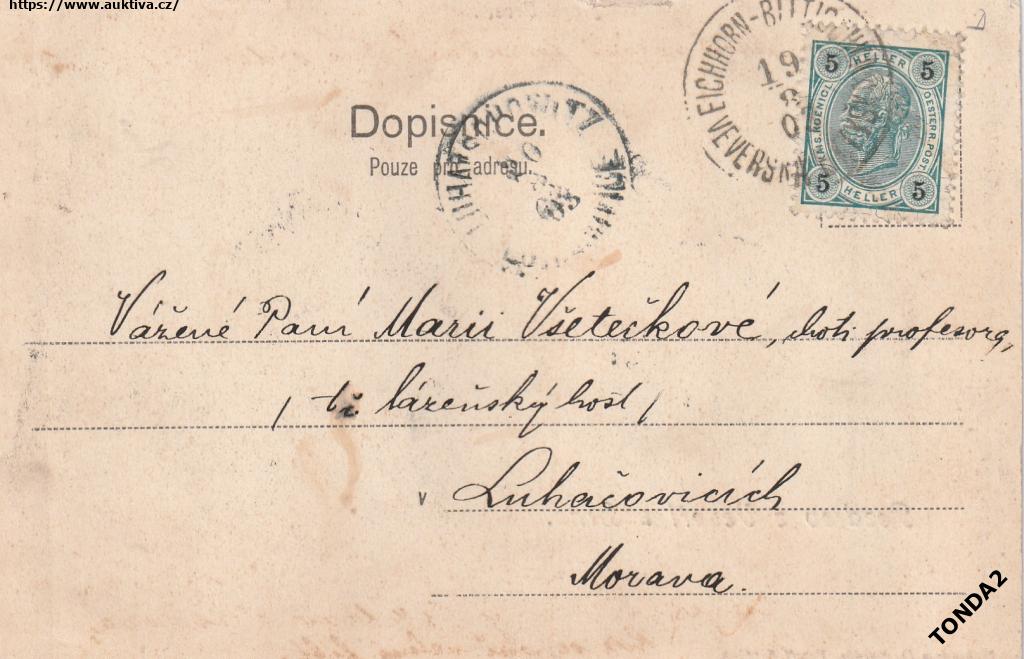 https://www.auktiva.cz/
EICHHORN-BITTI
VEVERSKÁ
19
5 HELLER 5
KAIS. KOENIGL. OESTERR. POST
5 HELLER 5
Dopisnice.
Pouze pro adresu.
20
03
Vážené Paní Marii Všetečkové, choti profesora,
/ tč. lázeňský host /
v Luhačovicích
Morava.
TONDA2